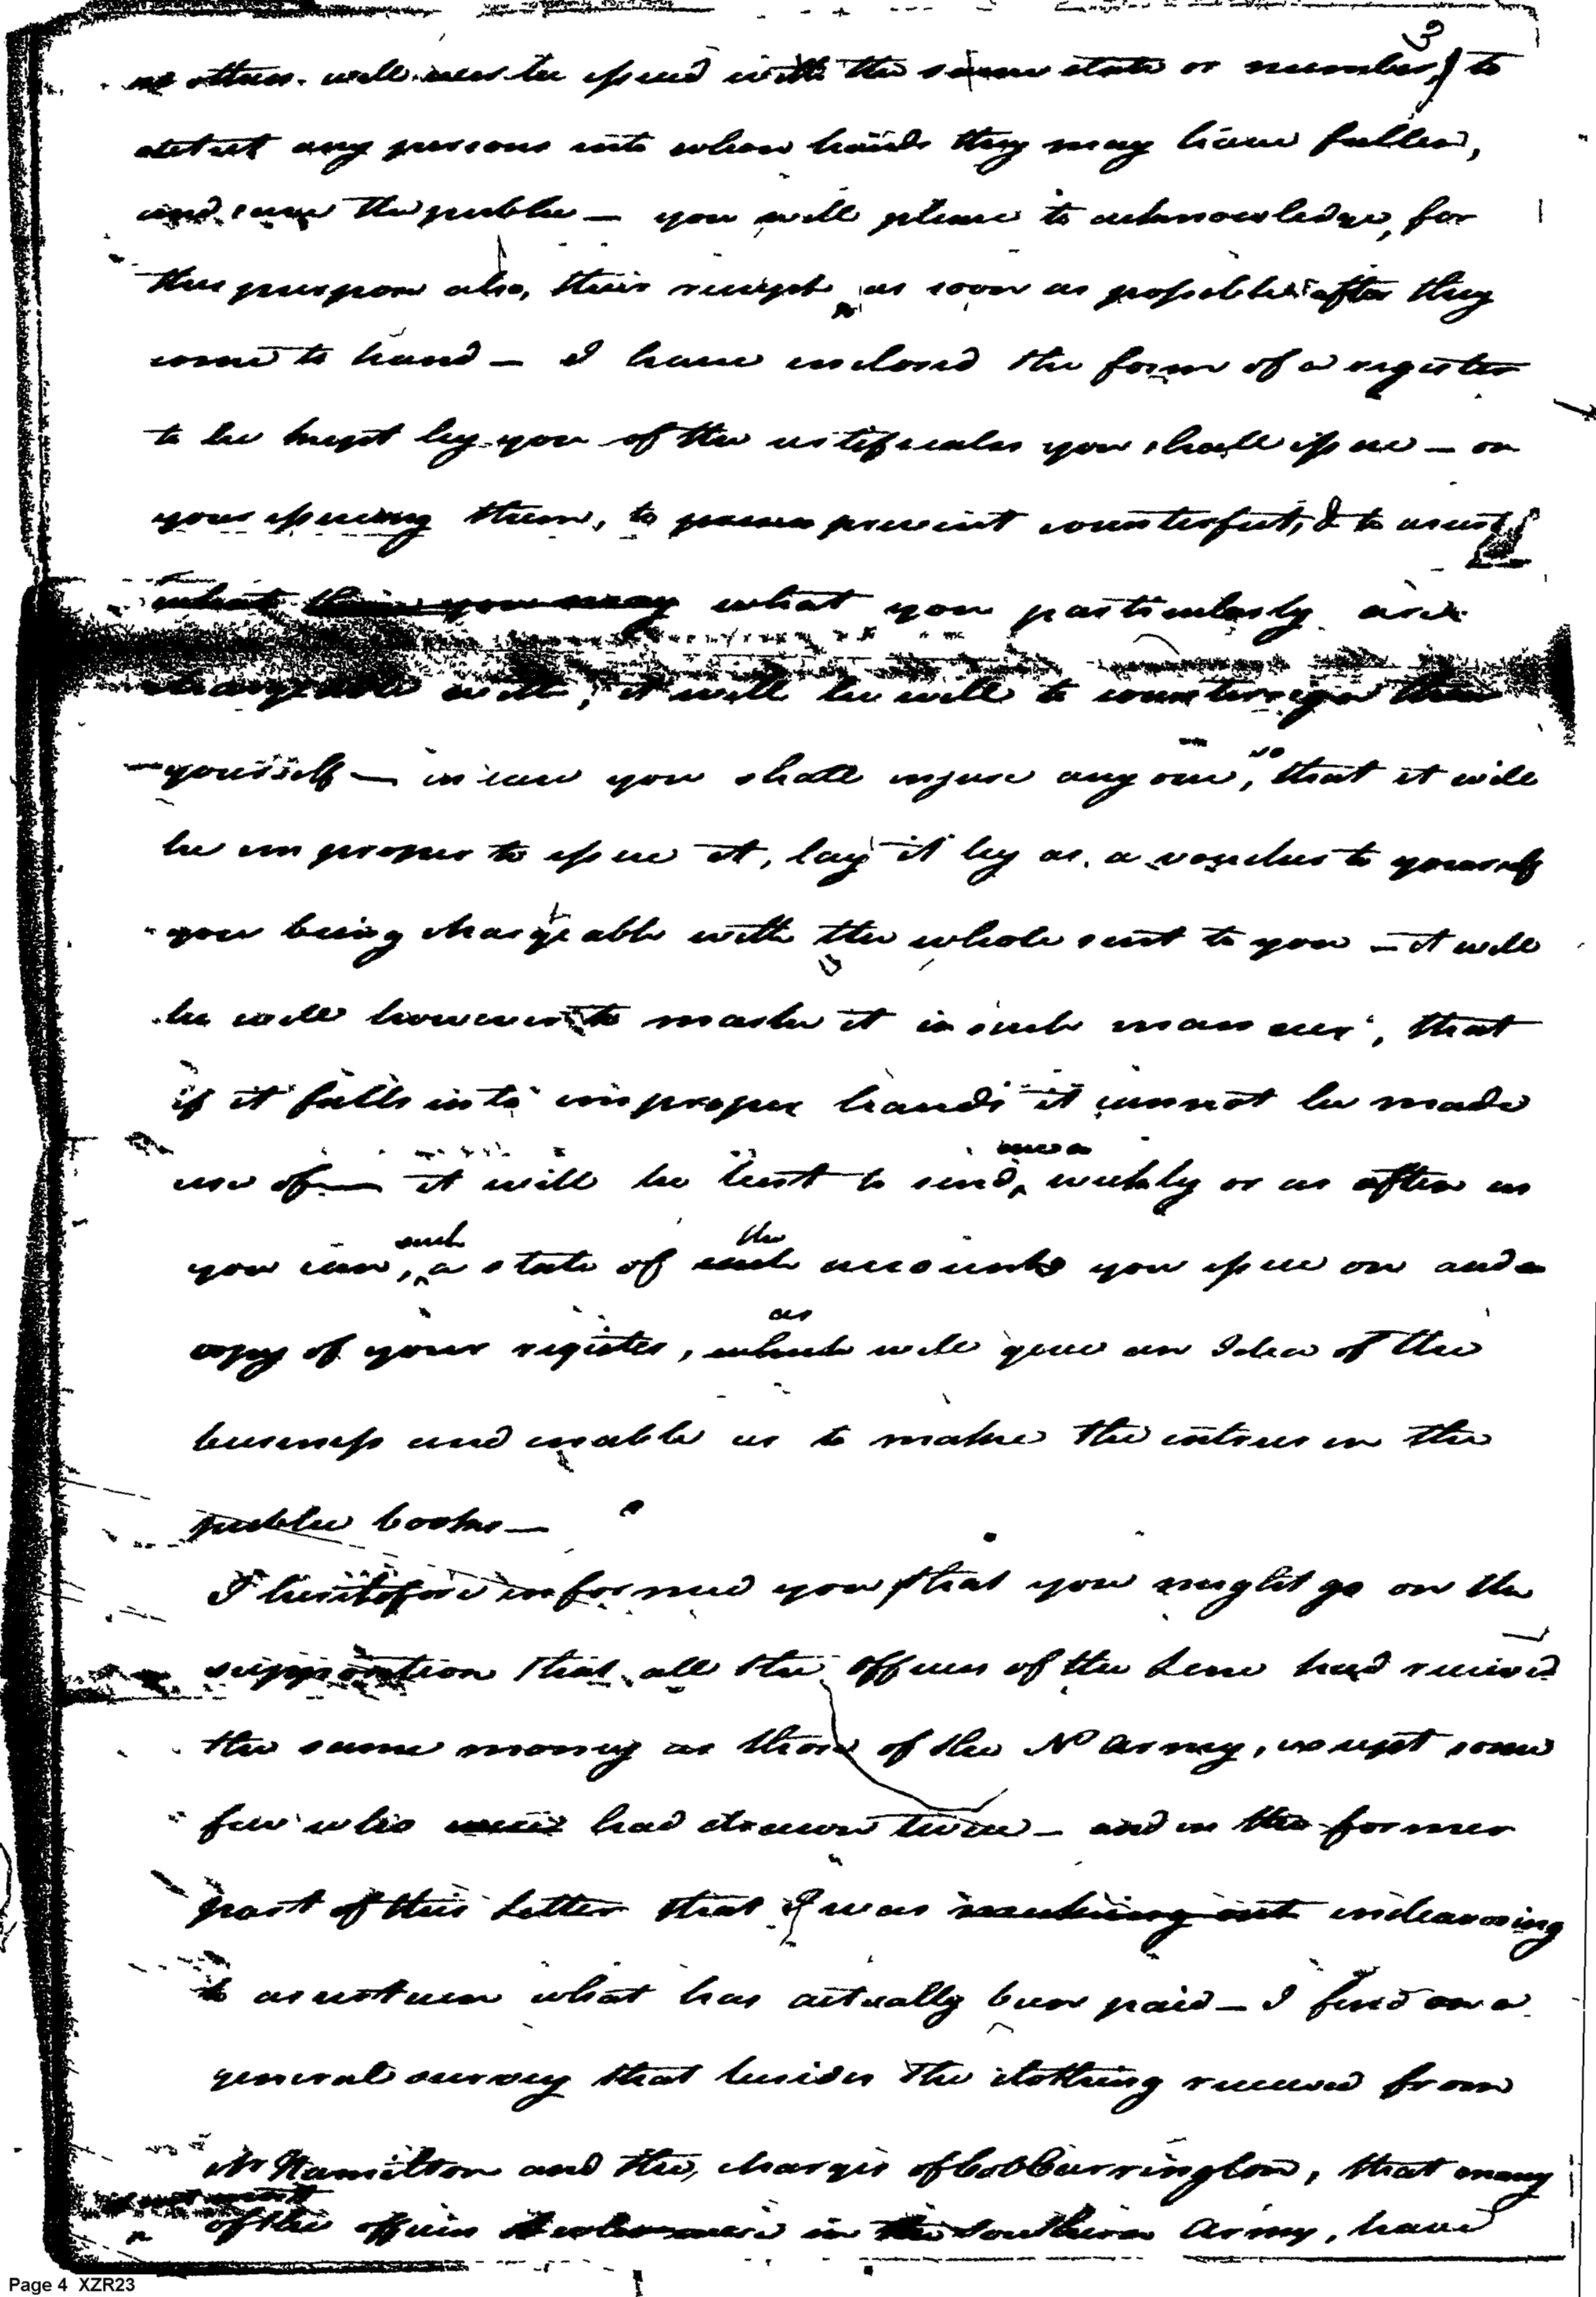 3
no others will ever be issued with the same date or number, to
detect any persons into whose hands they may have fallen,
and save the public — you will please to acknowledge, for
this purpose also, their receipt as soon as possible after they
come to hand — I have enclosed the form of a register
to be kept by you of the certificates you shall issue — on
your issuing them, to prevent counterfeits, & to
what you particularly are
chargeable with, it will be well to countersign them
yourself — in case you shall injure any one, so that it will
be improper to issue it, lay it by as a voucher to yourself
you being chargeable with the whole sent to you — it will
be well however to marke it in such manner, that
if it falls into improper hands it cannot be made
use of — it will be best to send, once a weekly or as often as
you can, such a state of the accounts you issue on and a
copy of your register, as will give an Idea of the
business and enable us to make the entries in the
public books —
I heretofore informed you that you might go on the
supposition that all the officers of the Line had received
the same money as those of the No Army, except some
few who had drawn twice — and in the former
part of this Letter that I was making out endeavoring
to ascertain what has actually been paid — I find on a
general survey that besides the clothing received from
Mr Hamilton and the charges of Col Carrington, that many
of the officers in the Southern Army, have
Page 4 XZR23